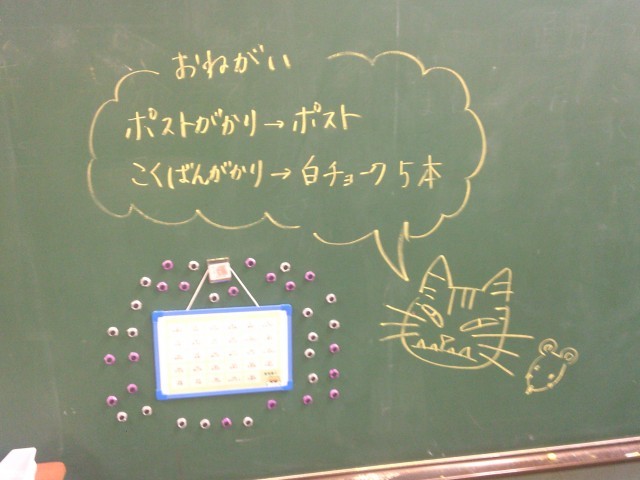 おねがい
ポストがかり→ポスト
こくばんがかり→白チョーク5本